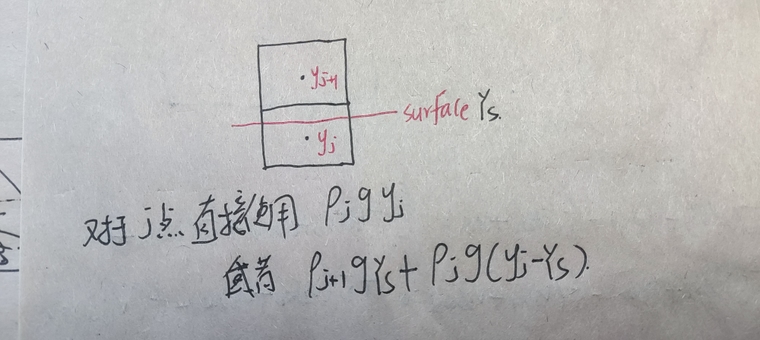 y_{j+1}
surface Y_s.
y_j
对于 j点 直接使用 ρ_j g y_j
或者 ρ_{j+1} g Y_s + ρ_j g (y_j - Y_s).